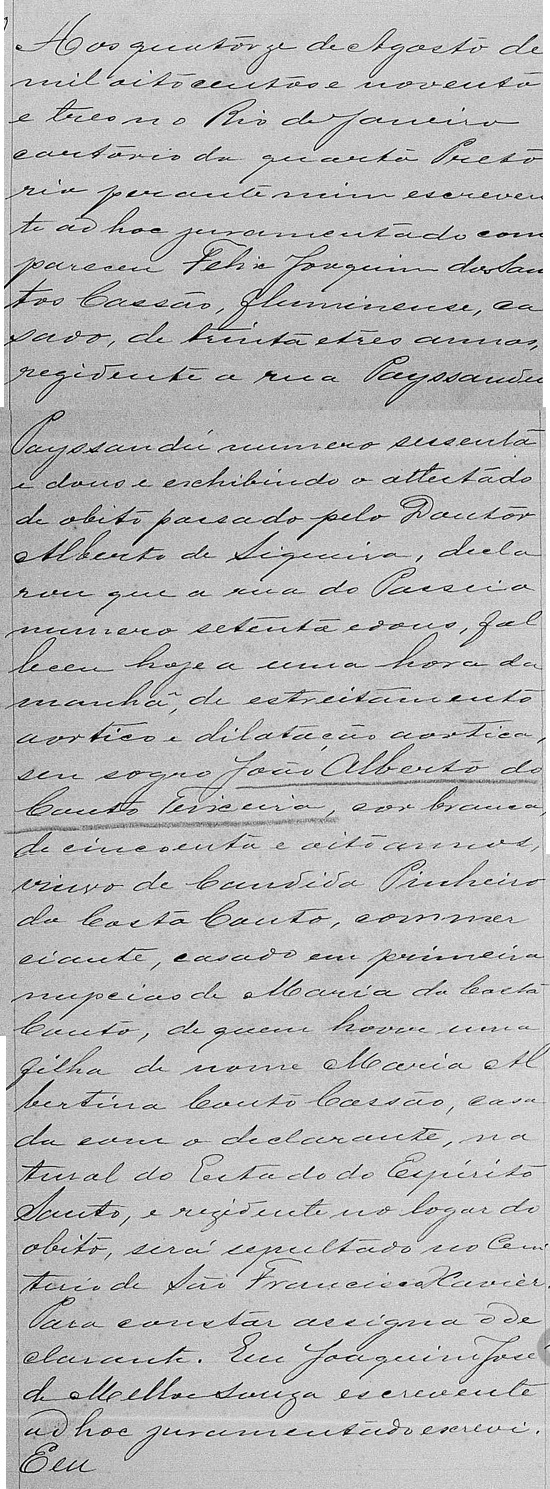 Aos quatorze de Agosto de
mil oitocentos e noventa
e tres no Rio de Janeiro
cartorio da quarta Preto
ria perante mim escreven
te ad hoc juramentado com
pareceu Felix Joaquim dos San
tos Cassão, fluminense, ca
sado, de trinta e tres annos,
rezidente a rua Payssandu
Payssandú numero sessenta
e dous e exchibindo o attestado
de obito passado pelo Doutor
Alberto de Siqueira, decla
rou que a rua do Passeio
numero setenta e dous, fal
leceu hoje a uma hora da
manhã, de estreitamento
aortico e dilatação aortica,
seu sogro João Alberto do
Couto Teixeira, cor branca,
de cincoenta e oito annos,
viuvo de Candida Pinheiro
da Costa Couto, commer
ciante, casado em primeira
nupcias de Maria da Costa
Couto, de quem houve uma
filha de nome Maria Al
bertina Couto Cassão, casa
da com o declarante, na
tural do Estado do Espirito
Santo, e rezidente no logar do
obito, será sepultado no Cemi
terio de São Francisco Xavier.
Para constar assigna o de
clarante. Eu Joaquim José
de Mello e Souza escrevente
ad hoc juramentado escrevi.
E eu